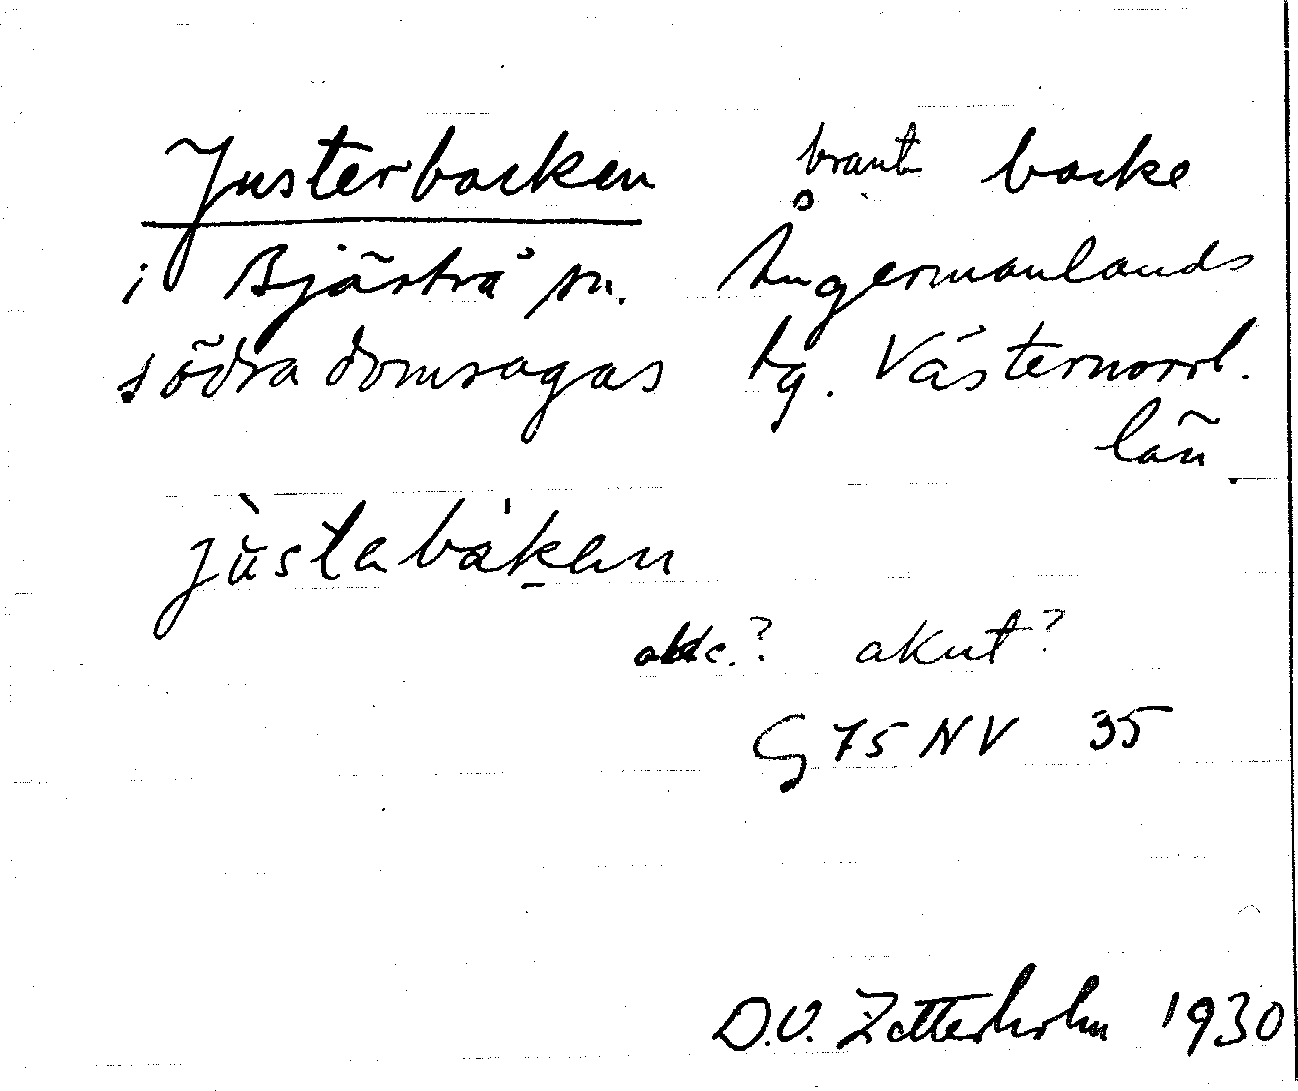 Justerbacken brant backe
i Bjärtrå sn. Ångermanlands
södra domsagas tg. Västernorrl.
län
jùstabáken
akc.? akut?
G 75 NV 35
D.O. Zetterholm 1930